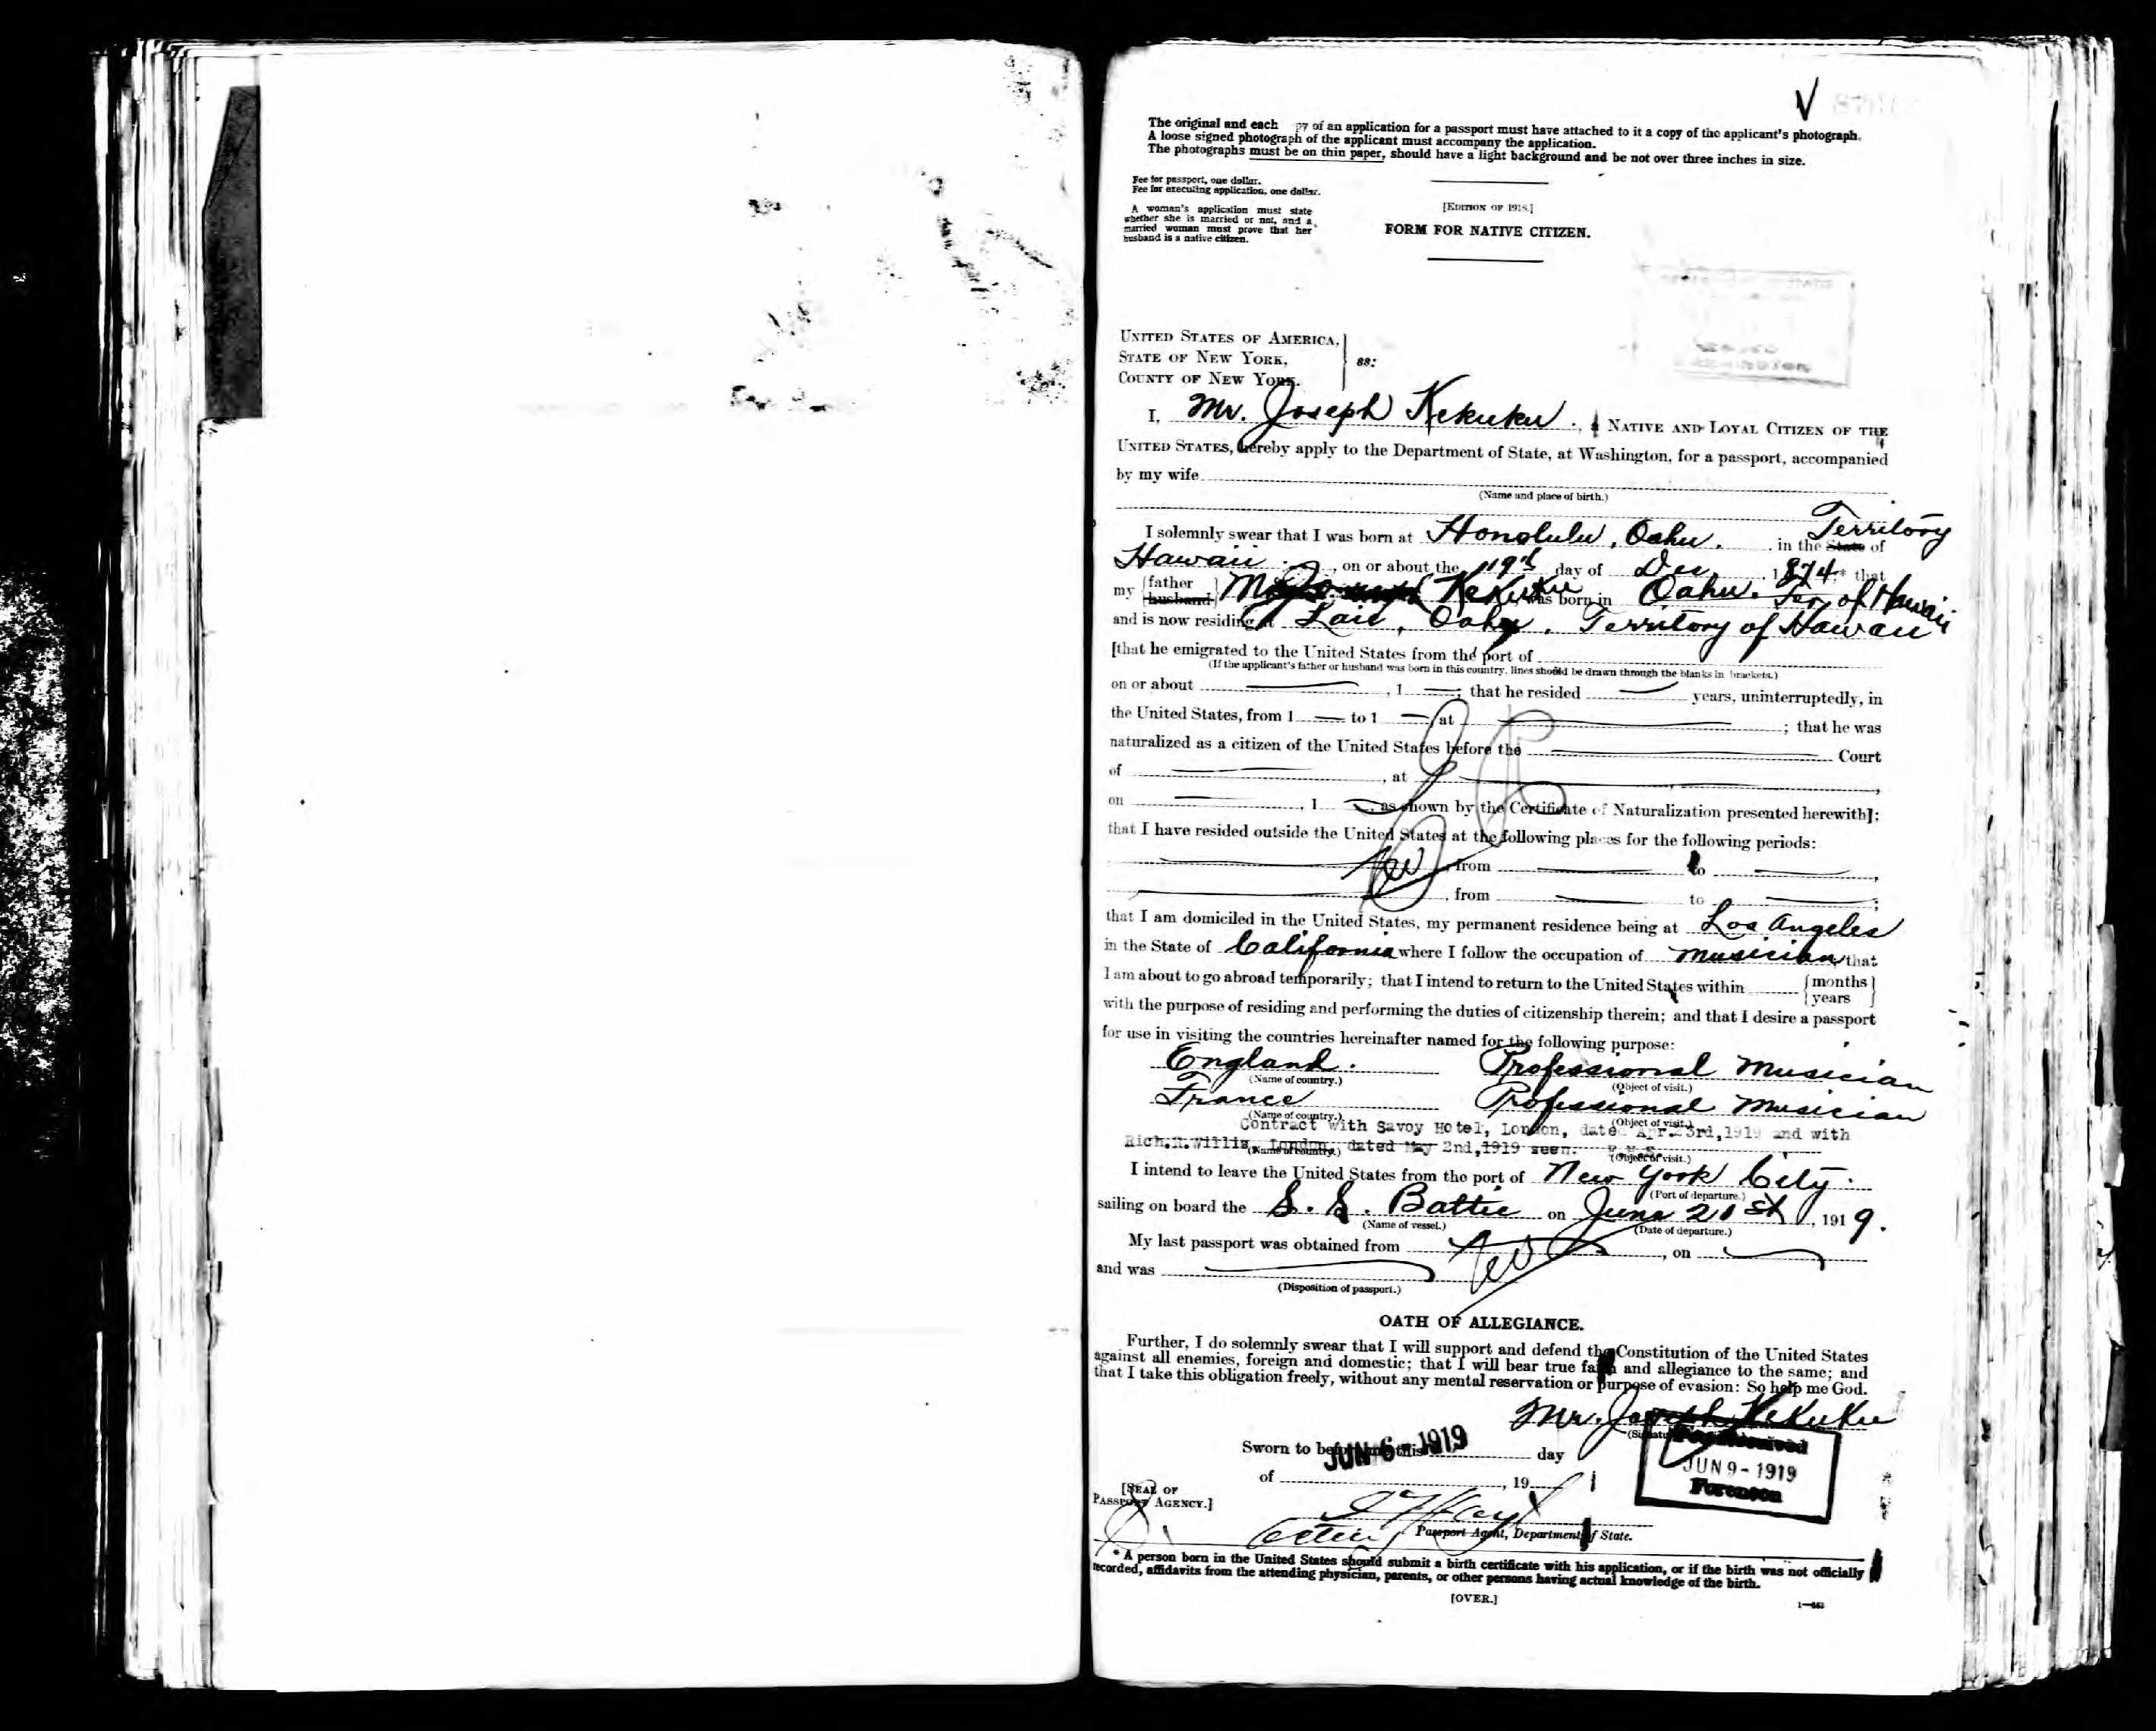 The original and each py of an application for a passport must have attached to it a copy of the applicant's photograph.
A loose signed photograph of the applicant must accompany the application.
The photographs must be on thin paper, should have a light background and be not over three inches in size.
Fee for passport, one dollar.
Fee for executing application, one dollar.
A woman's application must state
whether she is married or not, and a
married woman must prove that her
husband is a native citizen.
[EDITION OF 1918.]
FORM FOR NATIVE CITIZEN.
UNITED STATES OF AMERICA,
STATE OF NEW YORK,
COUNTY OF NEW YORK.
ss:
I, Mr. Joseph Kekuku., A NATIVE AND LOYAL CITIZEN OF THE
UNITED STATES, hereby apply to the Department of State, at Washington, for a passport, accompanied
by my wife
(Name and place of birth.)
I solemnly swear that I was born at Honolulu, Oahu. in the State of Territory
Hawaii, on or about the 19th day of Dec, 1874,* that
my father husband Kekuku was born in Oahu. Ter. of Hawaii
and is now residing at Laie, Oahu, Territory of Hawaii
[that he emigrated to the United States from the port of
(If the applicant's father or husband was born in this country, lines should be drawn through the blanks in brackets.)
on or about , 1 ; that he resided years, uninterruptedly, in
the United States, from 1 to 1 at ; that he was
naturalized as a citizen of the United States before the Court
of , at ,
on , 1 , as shown by the Certificate of Naturalization presented herewith];
that I have resided outside the United States at the following places for the following periods:
, from to ,
, from to ;
that I am domiciled in the United States, my permanent residence being at Los Angeles
in the State of California where I follow the occupation of musician, that
I am about to go abroad temporarily; that I intend to return to the United States within months years
with the purpose of residing and performing the duties of citizenship therein; and that I desire a passport
for use in visiting the countries hereinafter named for the following purpose:
England. Professional Musician
(Name of country.) (Object of visit.)
France Professional Musician
(Name of country.) (Object of visit.)
Contract with Savoy Hotel, London, dated Apr. 23rd, 1919 and with
Rich.R.Willis, London, dated May 2nd,1919 seen.
(Name of country.) (Object of visit.)
I intend to leave the United States from the port of New York City.
(Port of departure.)
sailing on board the S. S. Baltic on June 21st, 1919.
(Name of vessel.) (Date of departure.)
My last passport was obtained from , on
and was
(Disposition of passport.)
OATH OF ALLEGIANCE.
Further, I do solemnly swear that I will support and defend the Constitution of the United States
against all enemies, foreign and domestic; that I will bear true faith and allegiance to the same; and
that I take this obligation freely, without any mental reservation or purpose of evasion: So help me God.
Mr. Joseph Kekuku
Sworn to before me this day
JUN 6 - 1919
of , 19
Fee Received
JUN 9 - 1919
Forenoon
[SEAL OF
PASSPORT AGENCY.]
Passport Agent, Department of State.
* A person born in the United States should submit a birth certificate with his application, or if the birth was not officially
recorded, affidavits from the attending physician, parents, or other persons having actual knowledge of the birth.
[OVER.]